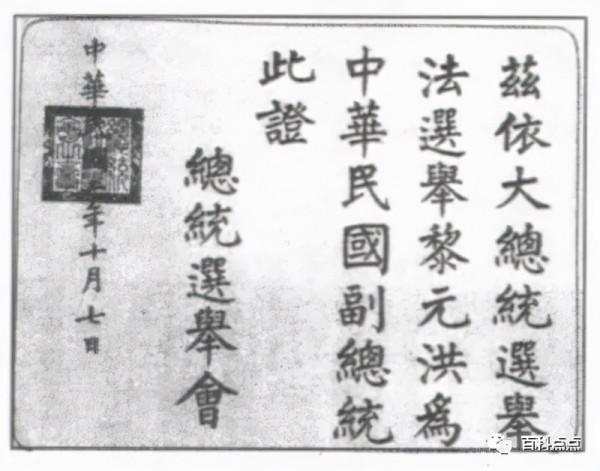 茲依大總統選舉
法選舉黎元洪爲
中華民國副總統
此證
總統選舉會
中華民國二年十月七日
百科点点